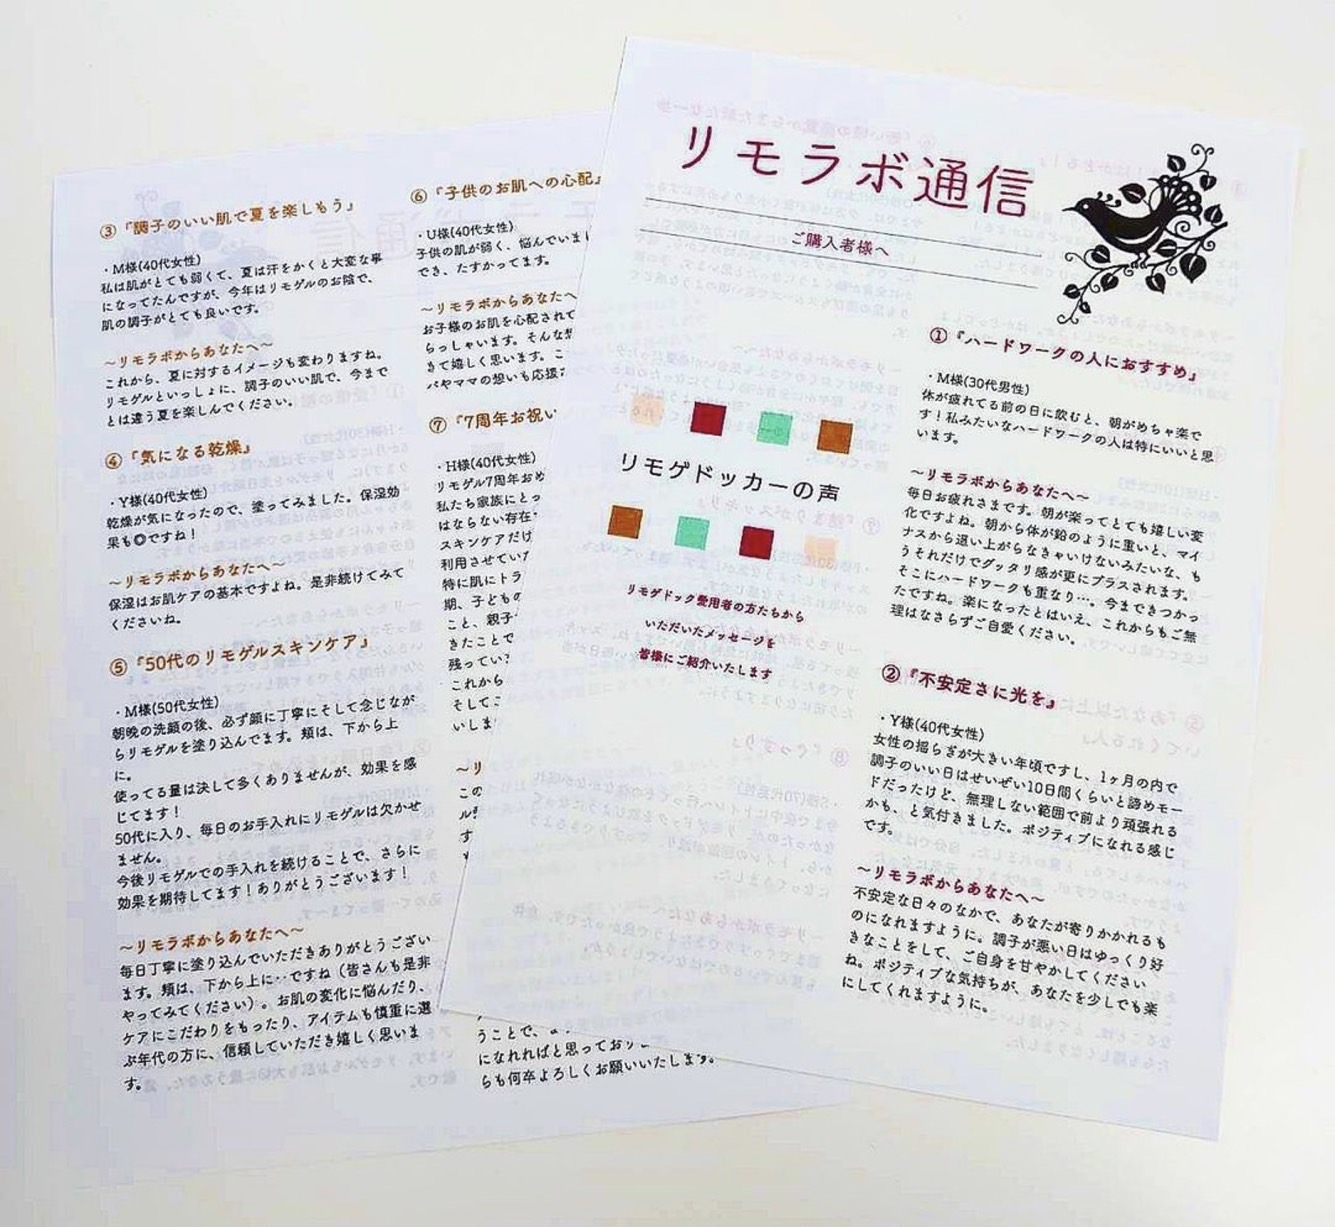 リモラボ通信
ご購入者様へ
リモゲドッカーの声
リモゲドック愛用者の方たちから
いただいたメッセージを
皆様にご紹介いたします
①『ハードワークの人におすすめ』
・M様(30代男性)
体が疲れてる前の日に飲むと、朝がめちゃ楽で
す！私みたいなハードワークの人は特にいいと思
います。
～リモラボからあなたへ～
毎日お疲れさまです。朝が楽ってとても嬉しい変
化ですよね。朝から体が鉛のように重いと、マイ
ナスから這い上がらなきゃいけないみたいな、も
うそれだけでグッタリ感が更にプラスされます。
そこにハードワークも重なり…。今まできつかっ
たですね。楽になったとはいえ、これからもご無
理はなさらずご自愛ください。
②『不安定さに光を』
・Y様(40代女性)
女性の揺らぎが大きい年頃ですし、1ヶ月の内で
調子のいい日はせいぜい10日間くらいと諦めモー
ドだったけど、無理しない範囲で前より頑張れる
かも、と気付きました。ポジティブになれる感じ
です。
～リモラボからあなたへ～
不安定な日々のなかで、あなたが寄りかかれるも
のになれますように。調子が悪い日はゆっくり好
きなことをして、ご自身を甘やかしてください
ね。ポジティブな気持ちが、あなたを少しでも楽
にしてくれますように。
③『調子のいい肌で夏を楽しもう』
・M様(40代女性)
私は肌がとても弱くて、夏は汗をかくと大変な事
になってたんですが、今年はリモゲルのお陰で、
肌の調子がとても良いです。
～リモラボからあなたへ～
これから、夏に対するイメージも変わりますね。
リモゲルといっしょに、調子のいい肌で、今まで
とは違う夏を楽しんでください。
④『気になる乾燥』
・Y様(40代女性)
乾燥が気になったので、塗ってみました。保湿効
果も◎ですね！
～リモラボからあなたへ～
保湿はお肌ケアの基本ですよね。是非続けてみて
くださいね。
⑤『50代のリモゲルスキンケア』
・M様(50代女性)
朝晩の洗顔の後、必ず顔に丁寧にそして念じなが
らリモゲルを塗り込んでます。頬は、下から上
に。
使ってる量は決して多くありませんが、効果を感
じてます！
50代に入り、毎日のお手入れにリモゲルは欠かせ
ません。
今後リモゲルでの手入れを続けることで、さらに
効果を期待してます！ありがとうございます！
～リモラボからあなたへ～
毎日丁寧に塗り込んでいただきありがとうござい
ます。頬は、下から上に‥ですね（皆さんも是非
やってみてください）。お肌の変化に悩んだり、
ケアにこだわりをもったり、アイテムも慎重に選
ぶ年代の方に、信頼していただき嬉しく思いま
す。
⑥『子供のお肌への心配』
・U様(40代女性)
子供の肌が弱く、悩んでいまし
でき、たすかってます。
～リモラボからあなたへ
お子様のお肌を心配されて
らっしゃいます。そんな
きて嬉しく思います。こ
パやママの想いも応援
⑦『7周年お祝い
・H様(40代女性)
リモゲル7周年おめ
私たち家族にとっ
はならない存在
スキンケアだけ
利用させていた
特に肌にトラ
期、子どもの
こと、親子
きたことで
残ってい
これから
そしてこ
いしま
～リ
この
ル
す
うことで、
になれればと思っており
らも何卒よろしくお願いいたします。